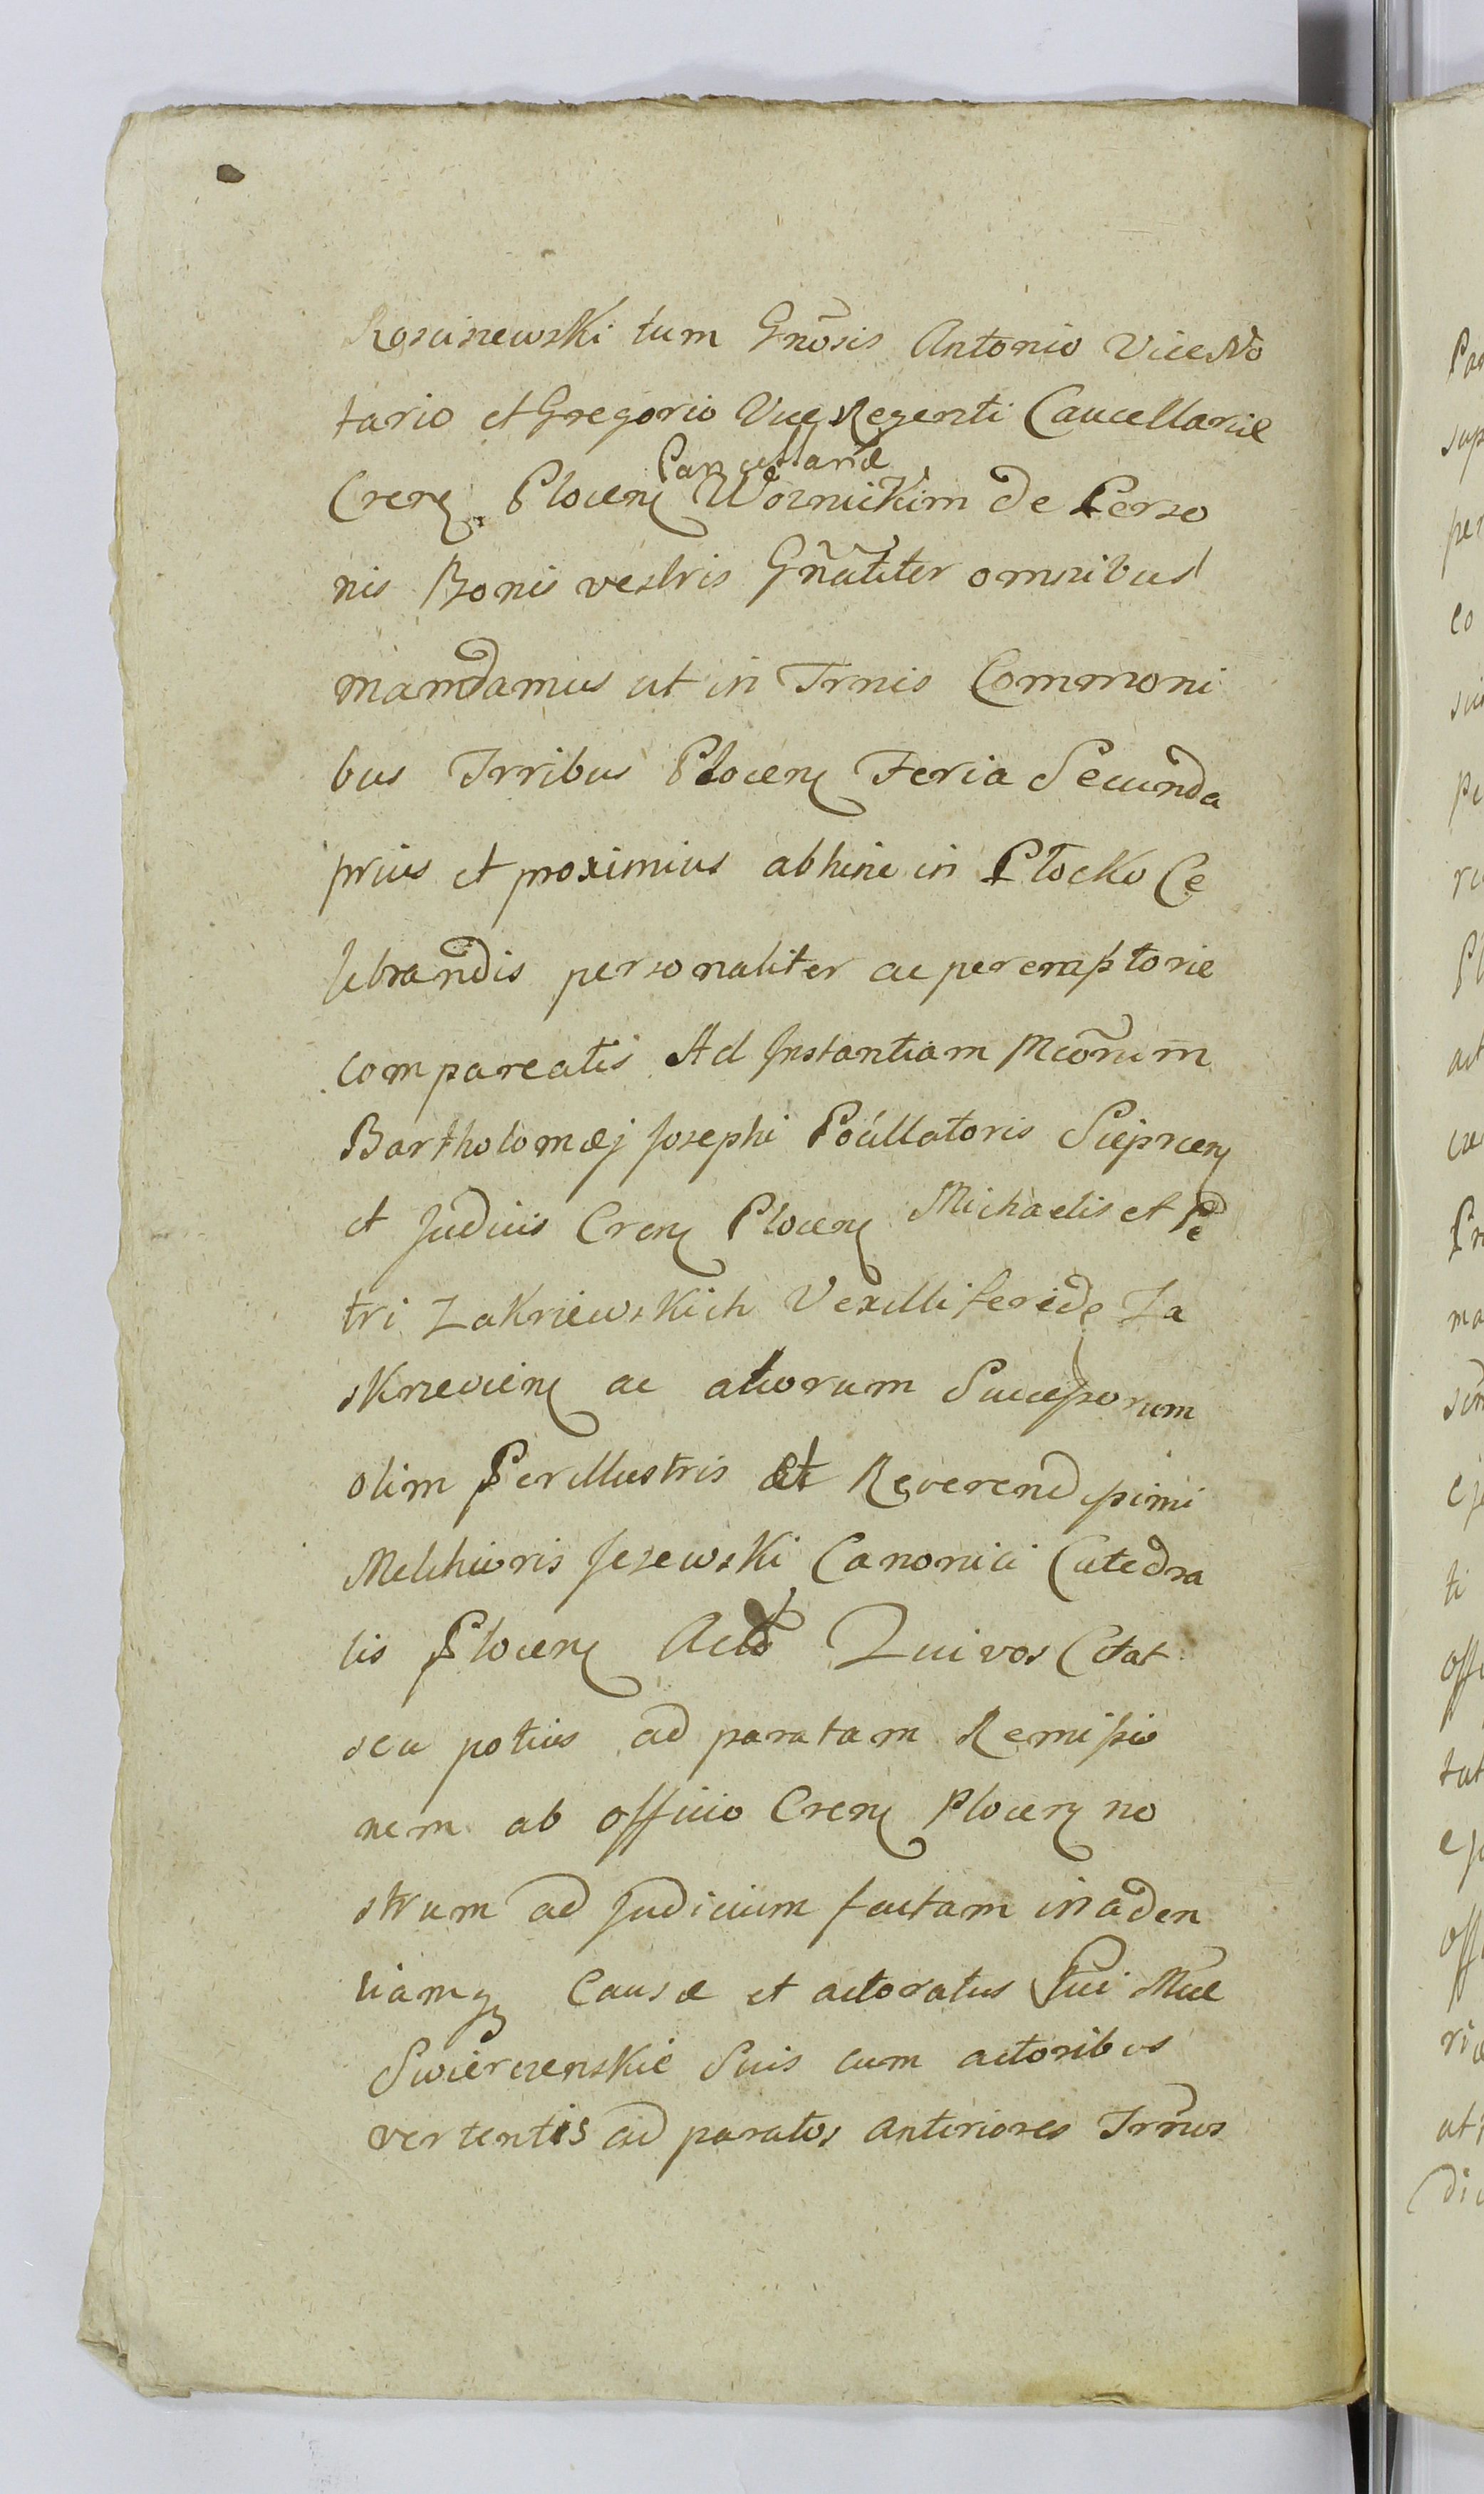 Rosciszewski tum Gnosis Antonio ViceNo
tario et Gregorio Vice Regenti Cancellariæ
Cancellariæ
Crens Plocens Woznickim de Perso
nis Bonis vestris Gnaliter omnibus
mandamus ut in Trnis Commoni
bus Trribus Plocens Feria Secunda
prius et proximius abhinc in Plocko Ce
lebrandis personaliter ac peremptorie
compareatis Ad Instantiam Mcorum
Bartholomæj Josephi Pocillatoris Sieprcens
et Judicis Crens Plocens Michaelis et Pe
tri Zakrzewskich Vexilliferidę Za
skrzeciens ac aliorum Successorum
olim Perillustris et Reverendissimi
Melchioris Jezewski Canonici Catedra
lis Plocens Actō Qui vos Citat
seu potius ad paratam Remissio
nem ab officio Crens Plocens no
strum ad Judicium factam in aden
tiamq Causæ et actoratus sui Mcæ
Swierczenskie Suis cum actoribus
vertentis ad paratos anteriores Trnos